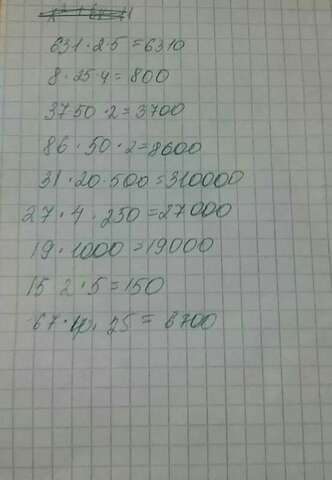 631 · 2 · 5 = 6310
8 · 25 · 4 = 800
37 50 · 2 = 3700
86 · 50 · 2 = 8600
31 · 20 · 500 = 310000
27 · 4 · 250 = 27000
19 · 1000 = 19000
15 2 · 5 = 150
67 · 4 · 25 = 6700